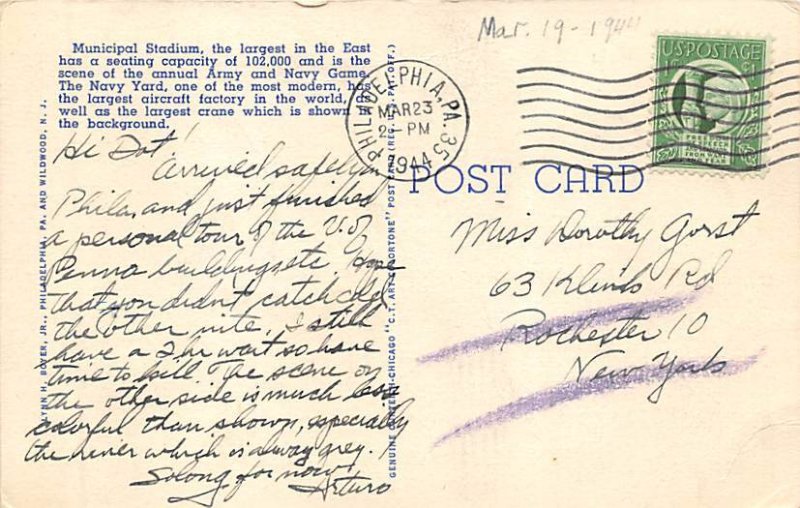 Mar. 19 - 1944
Municipal Stadium, the largest in the East
has a seating capacity of 102,000 and is the
scene of the annual Army and Navy Game.
The Navy Yard, one of the most modern, has
the largest aircraft factory in the world, as
well as the largest crane which is shown in
the background.
Hi Dot!
Arrived safely in
Phila. and just finished
a personal tour of the U. of
Penna buildings etc. Hope
that you didn't catch cold
the other nite. I still
have a 2 hr wait so have
time to kill. The scene on
the other side is much less
colorful than shown, especially
the river which is alway grey.
So long for now!
Arturo
LYNN H. BOYER, JR., PHILADELPHIA, PA. AND WILDWOOD, N. J.
GENUINE CURTEICH-CHICAGO "C.T. ART-COLORTONE" POST CARD (REG. U.S. PAT. OFF.)
PHILADELPHIA, PA. 35
MAR 23
2 - PM
1944
POST CARD
U.S. POSTAGE
1¢
Miss Dorothy Gorst
63 Rd
Rochester 10
New York